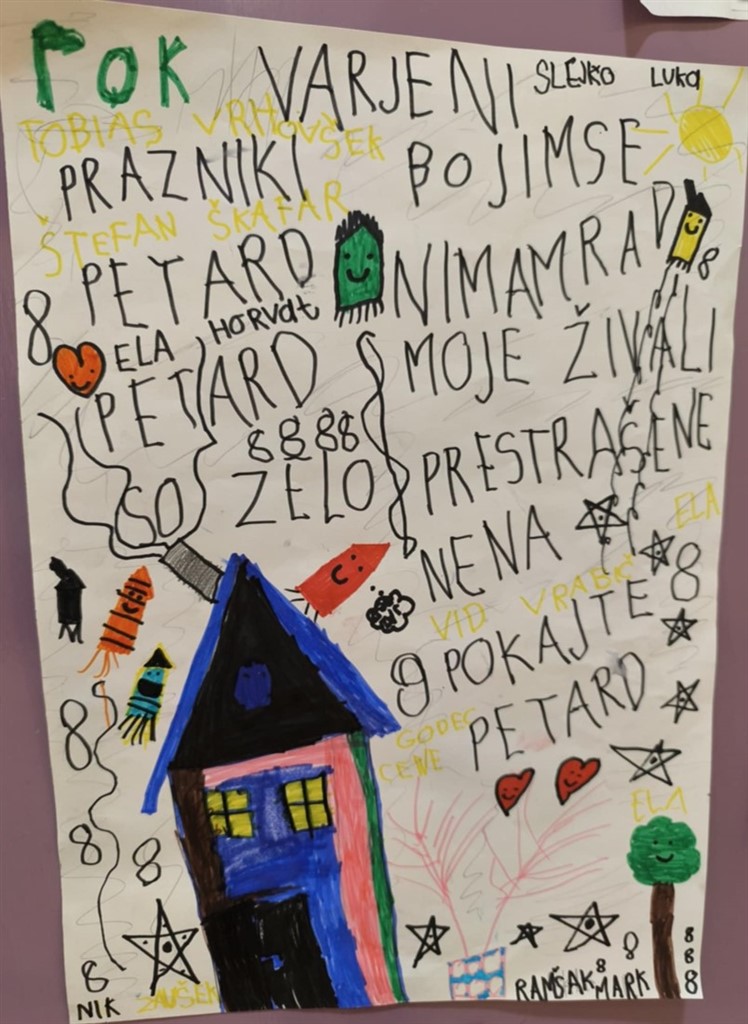 POK VARJENI SLEJKO LUKA
TOBIAS VRHOVŠEK
PRAZNIKI BOJIMSE
ŠTEFAN ŠKAFAR
PETARD NIMAMRAD
8
8
ELA HORVAT
PETARD MOJE ŽIVALI
8888
SO ZELO PRESTRAŠENE
ELA
NENA
8
VID VRABIČ
9 POKAJTE
PETARD
GODEC
CENE
8
ELA
8
8
8
8
8
8
8
8
NIK ZAVŠEK RAMŠAK MARK